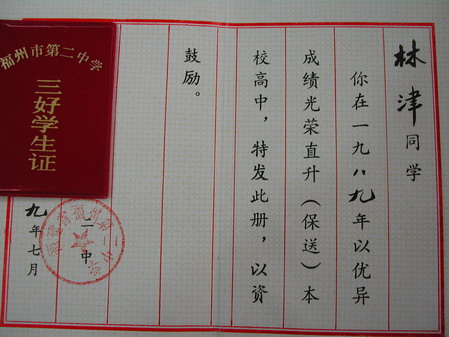 林津同学
你在一九八九年以优异
成绩光荣直升（保送）本
校高中，特发此册，以资
鼓励。
二中
九年七月
福州市第二中学
三好学生证